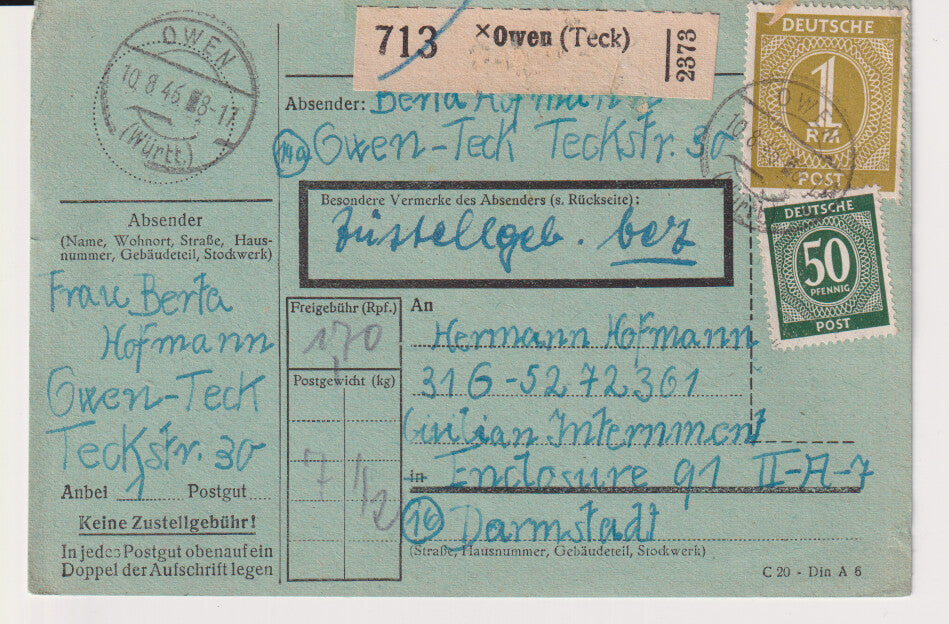 OWEN
10.8.46
(Württ.)
713 ×Owen (Teck)
2373
DEUTSCHE
1
POST
DEUTSCHE
50
PFENNIG
POST
Absender: Berta Hofmann
(14a) Owen-Teck Teckstr. 30
Besondere Vermerke des Absenders (s. Rückseite):
Zustellgeb. bez
Absender
(Name, Wohnort, Straße, Haus-
nummer, Gebäudeteil, Stockwerk)
Frau Berta
Hofmann
Owen-Teck
Teckstr. 30
Anbei 1 Postgut
Keine Zustellgebühr!
In jedes Postgut obenauf ein
Doppel der Aufschrift legen
Freigebühr (Rpf.)
1,70
Postgewicht (kg)
7 1/2
An
Hermann Hofmann
31G-5272361
Civilian Internment
in Enclosure 91 II-A-7
(16) Darmstadt
(Straße, Hausnummer, Gebäudeteil, Stockwerk)
C 20 - Din A 6